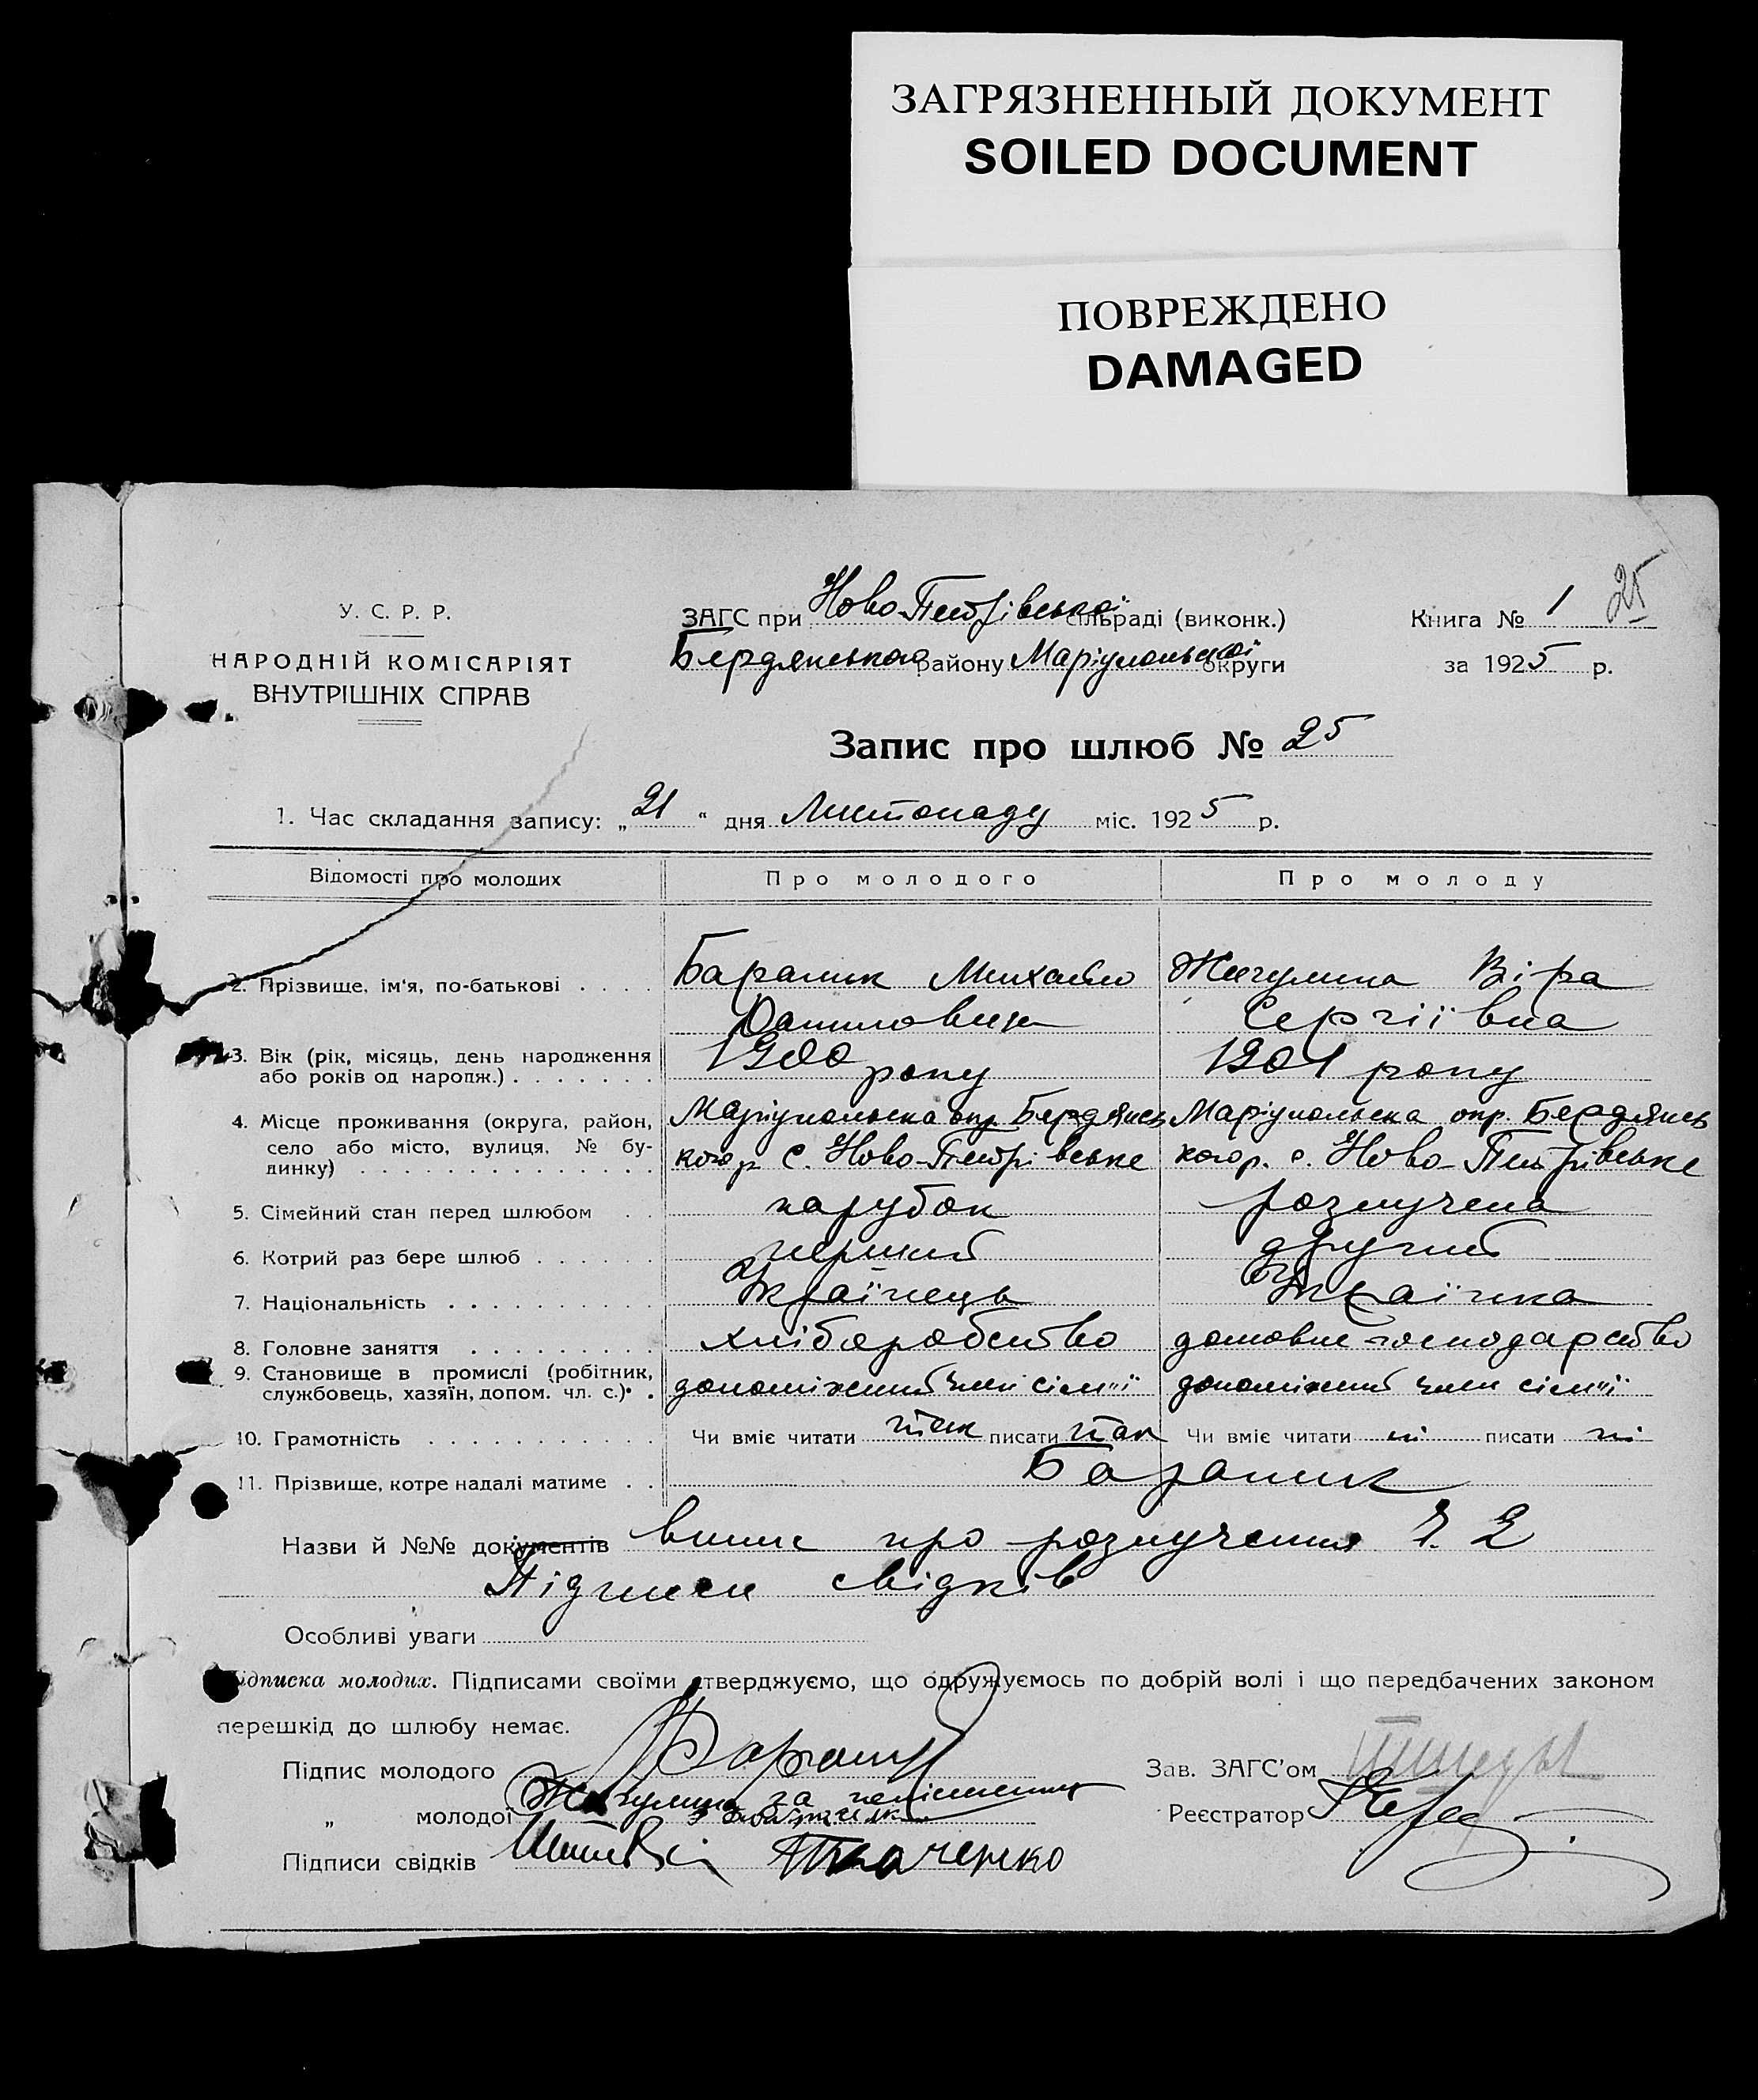 ЗАГРЯЗНЕННЫЙ ДОКУМЕНТ
SOILED DOCUMENT
ПОВРЕЖДЕНО
DAMAGED
25
У. С. Р. Р.
НАРОДНІЙ КОМІСАРІЯТ
ВНУТРІШНІХ СПРАВ
ЗАГС при Ново-Петрівській сільраді (виконк.)
Бердянського району Маріупольської округи
Книга № 1
за 1925 р.
Запис про шлюб № 25
1. Час складання запису: „21“ дня Листопаду міс. 1925 р.
Відомості про молодих Про молодого Про молоду
2. Прізвище, ім'я, по-батькові . . . . Бараник Михайло Жигулина Віра
Данилович Сергіївна
3. Вік (рік, місяць, день народження
або років од народж.) . . . . . . . 1900 року 1901 року
4. Місце проживання (округа, район, Маріупольська окр. Бердянсь Маріупольська окр. Бердянсь
село або місто, вулиця, № бу- кого р. с. Ново-Петрівське кого р. с. Ново-Петрівське
динку) . . . . . . . . . . . . . .
5. Сімейний стан перед шлюбом . . парубок розлучена
6. Котрий раз бере шлюб . . . . . . перший другий
7. Національність . . . . . . . . . . Українець Українка
8. Головне заняття . . . . . . . . . хліборобство домовне господарство
9. Становище в промислі (робітник,
службовець, хазяїн, допом. чл. с.) . допоміжний член сім"ї допоміжний член сім"ї
10. Грамотність . . . . . . . . . . . Чи вміє читати так писати так Чи вміє читати ні писати ні
11. Прізвище, котре надалі матиме . . Бараник
Назви й №№ документів випис про розлучення Ч. 2
Підписи свідків
Особливі уваги
Підписка молодих. Підписами своїми стверджуємо, що одружуємось по добрій волі і що передбачених законом
перешкід до шлюбу немає.
Підпис молодого Бараник
Зав. ЗАГС'ом
„ молодої Жигулина за неписьменну
Реєстратор
Підписи свідків Ткаченко